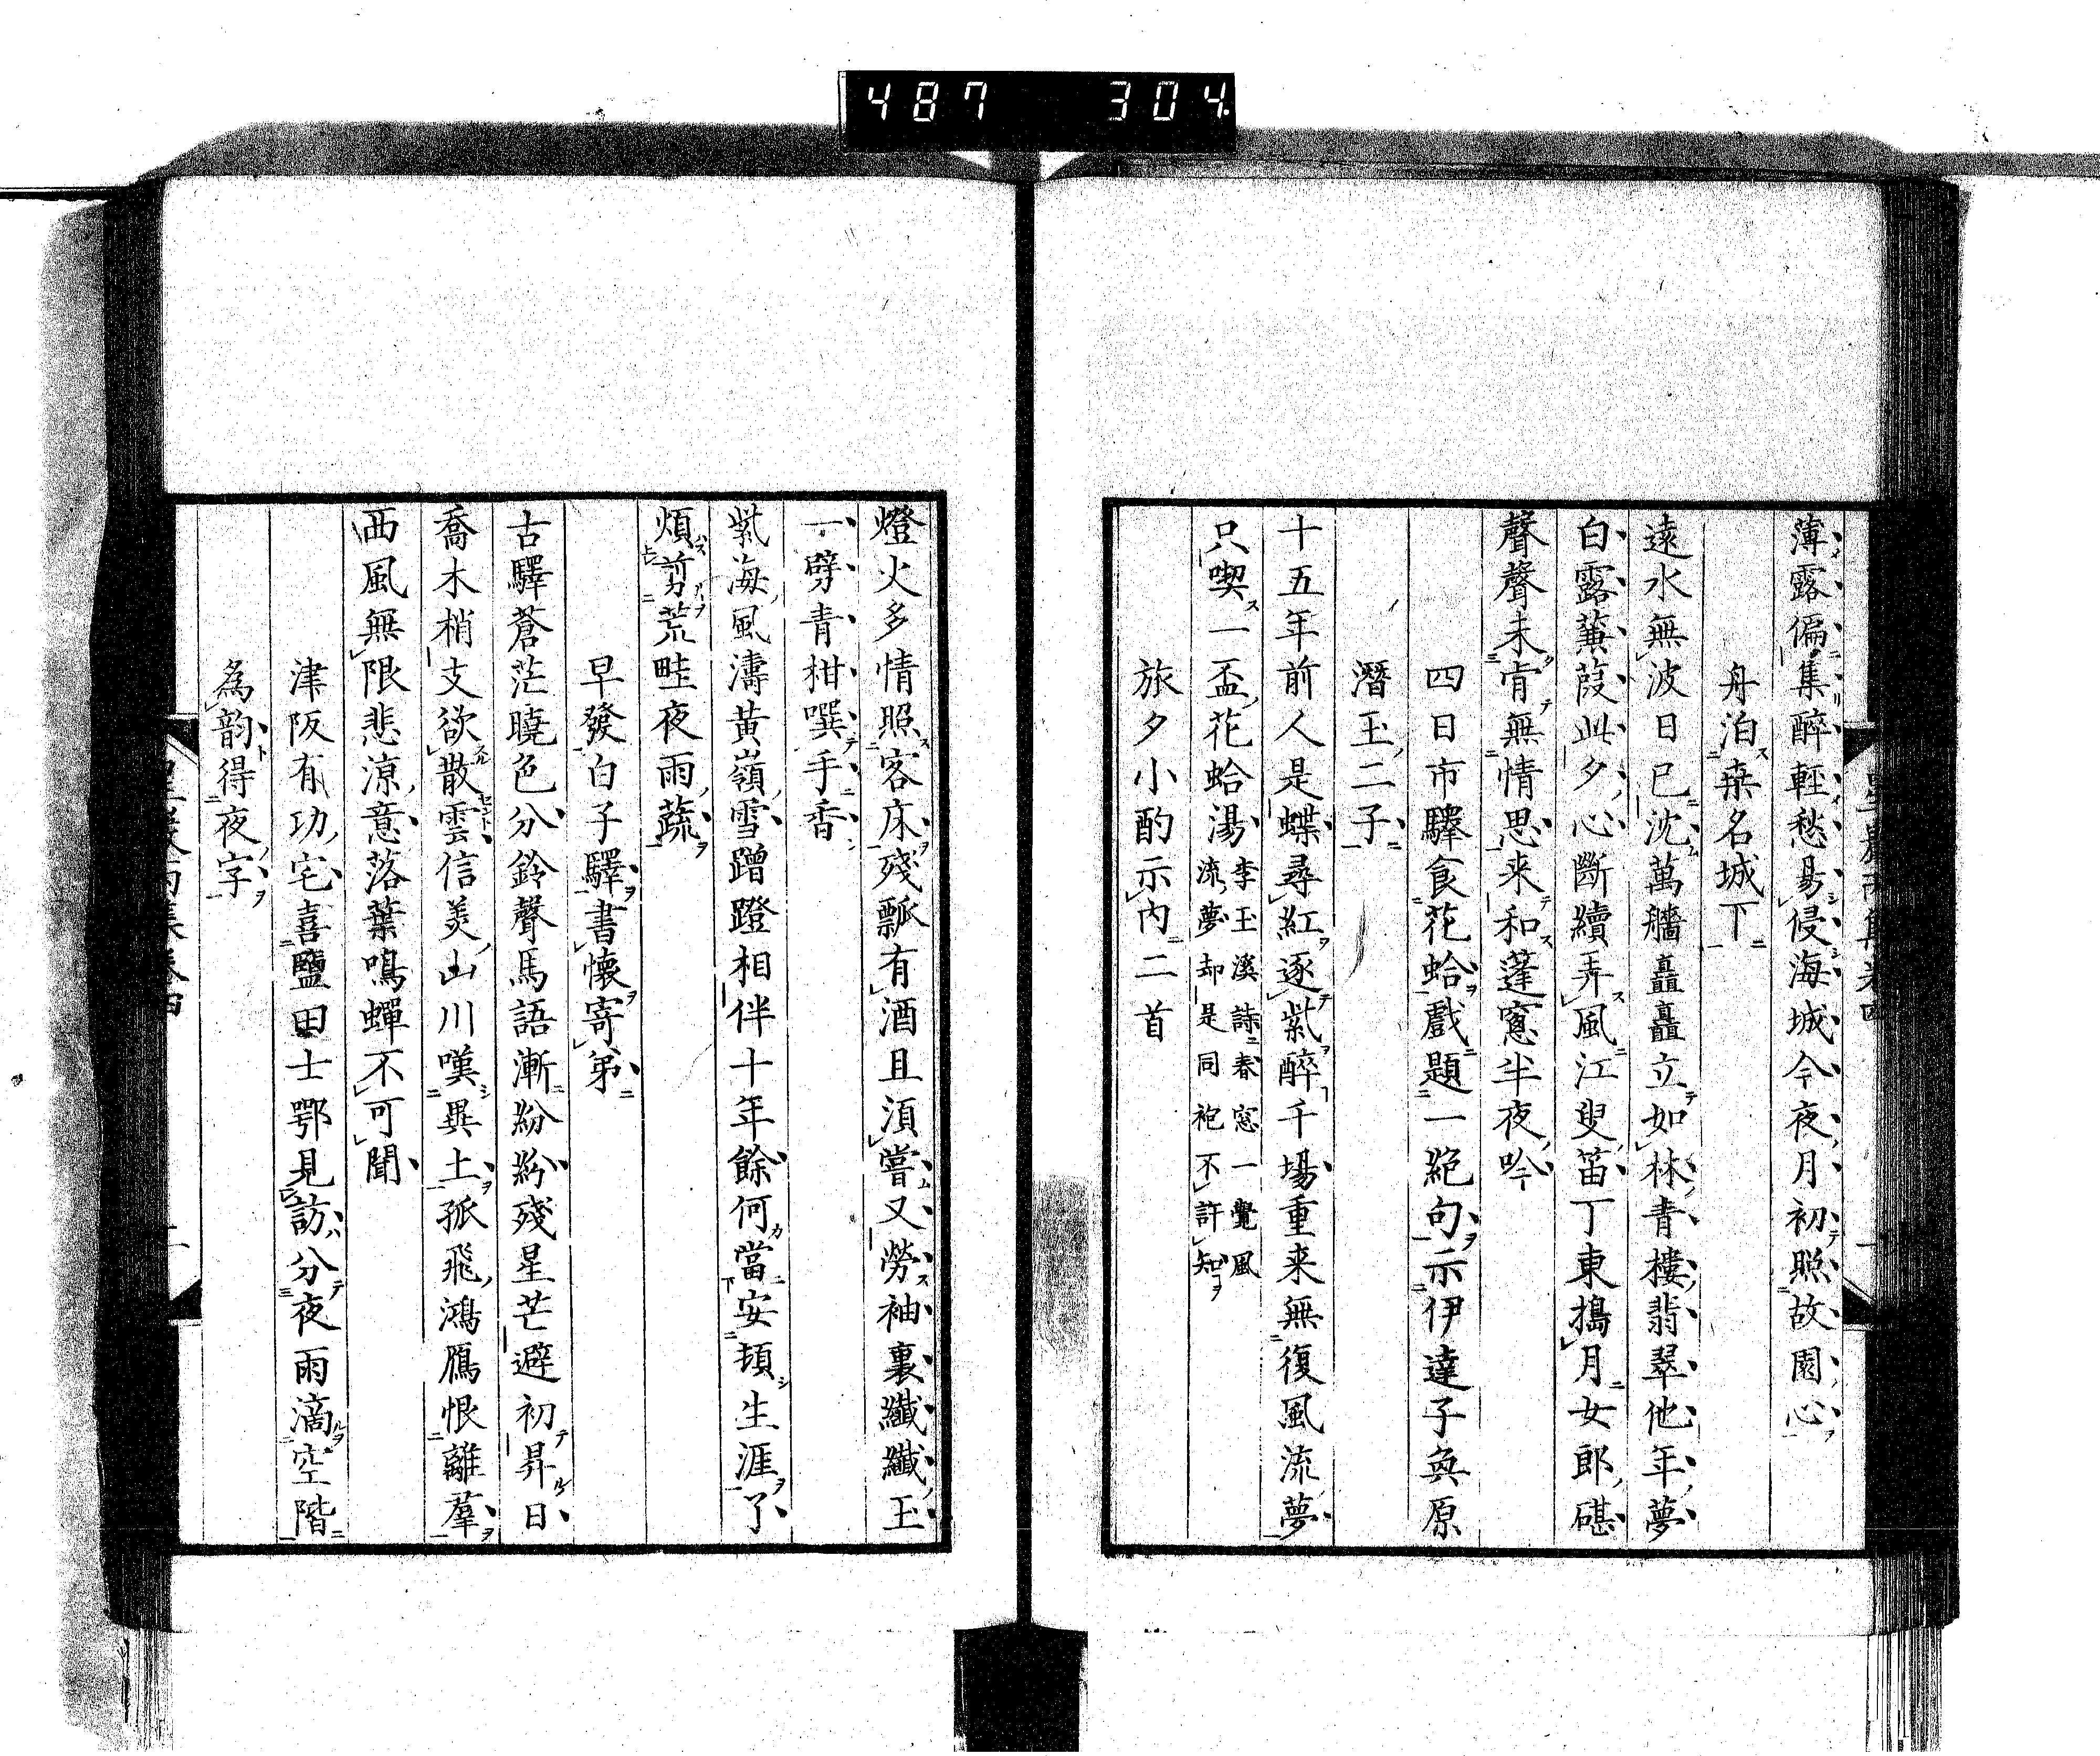 487 304
薄露偏集醉輕愁易侵海城今夜月初照故園心
舟泊桒名城下
遠水無波日已沈萬牆矗矗立如林青樓翡翠他年夢
白露蒹葭此夕心斷續弄風江叟笛丁東搗月女郎碪
聲聲未肯無情思来和蓬窻半夜吟
四日市驛食花蛤戲題一絶句示伊達子奐原
潛玉二子
十五年前人是蝶尋紅逐紫醉千場重来無復風流夢
只喫一盃花蛤湯李玉溪詩春窓一覺風流夢却是同袍不許知
旅夕小酌示内二首
燈火多情照客床殘瓢有酒且須嘗又勞袖裏纖纖玉
一劈青柑噀手香
紫海風濤黃嶺雪蹭蹬相伴十年餘何當安頓生涯了
煩剪荒畦夜雨蔬
早發白子驛書懷寄弟
古驛蒼茫曉色分鈴聲馬語漸紛紛殘星芒避初昇日
喬木梢支欲散雲信美山川嘆異土孤飛鴻鴈恨離羣
西風無限悲涼意落葉鳴蟬不可聞
津阪有功宅喜鹽田士鄂見訪分夜雨滴空階
為韵得夜字